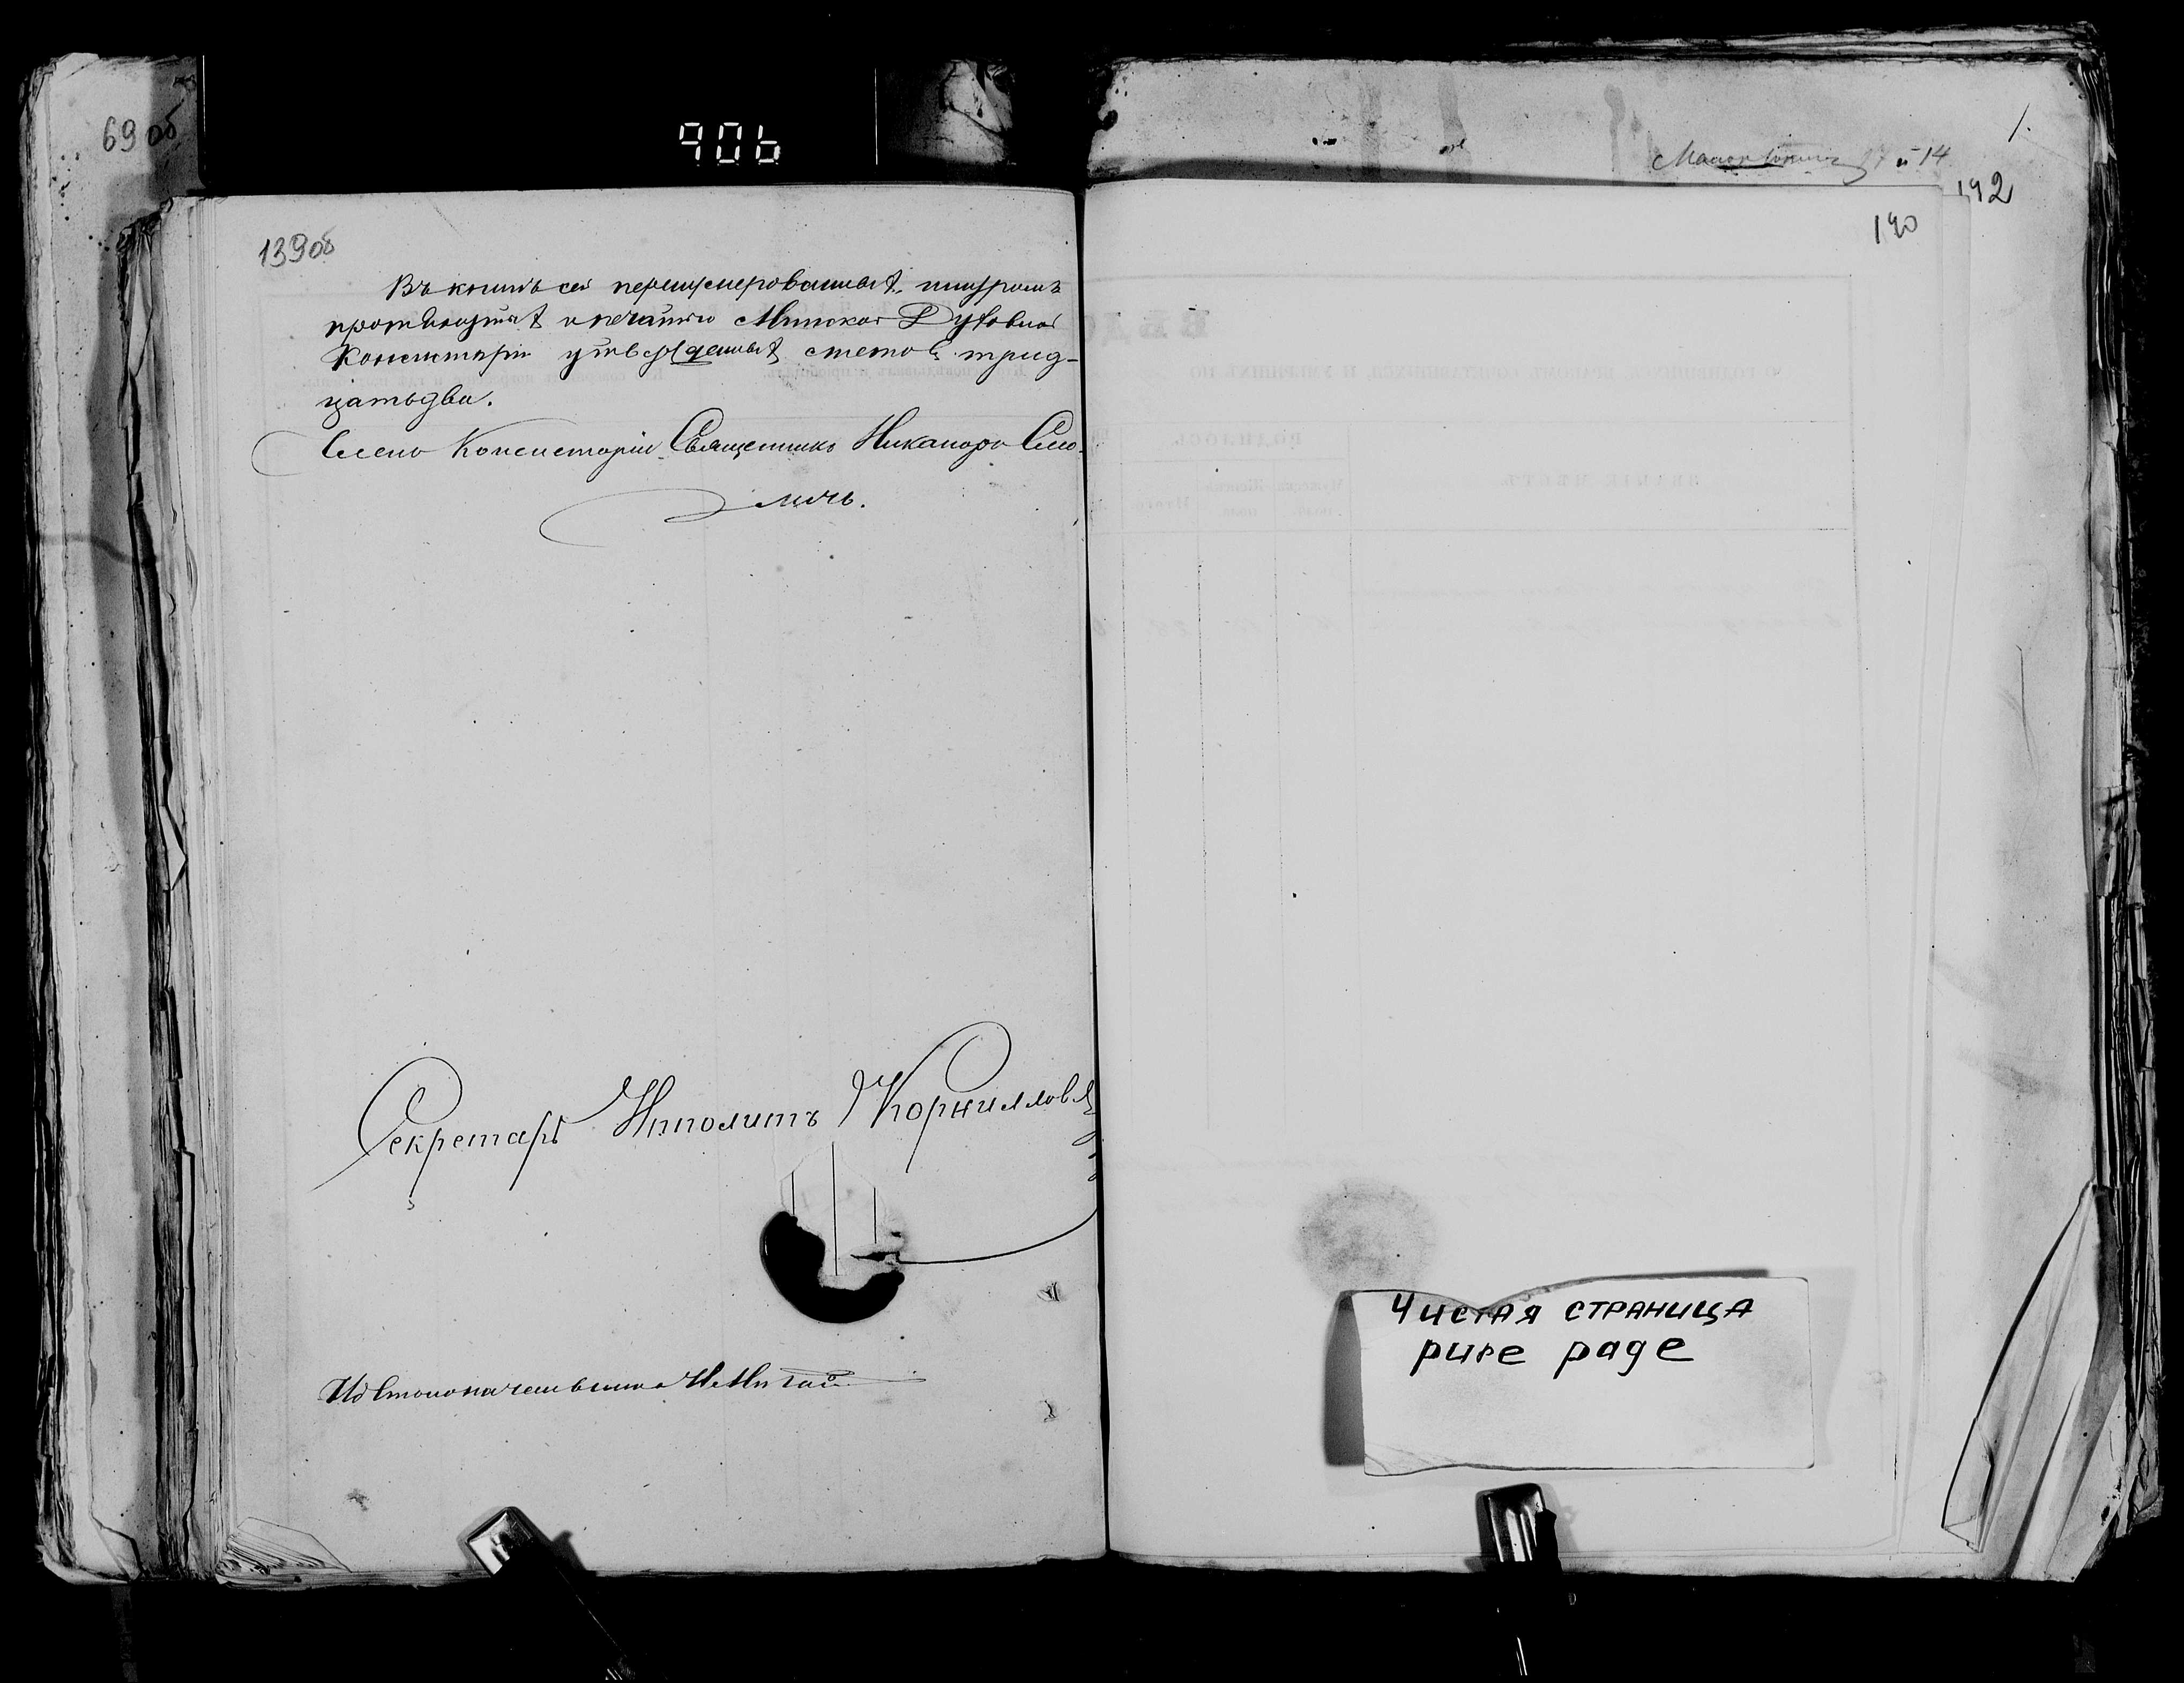 69 об
906
139 об
Въ книгѣ сей перенумерованныхъ, шнуромъ
протянутыхъ и печатью Минской Духовной
Консисторіи утвержденныхъ листовъ трид-
цать два.
Членъ Консисторіи Священникъ Никаноръ Смо-
личъ.
Секретарь Ипполитъ Корниловъ
И. д. Столоначальника
1.
и 14
142
140
Чистая страница
pure page